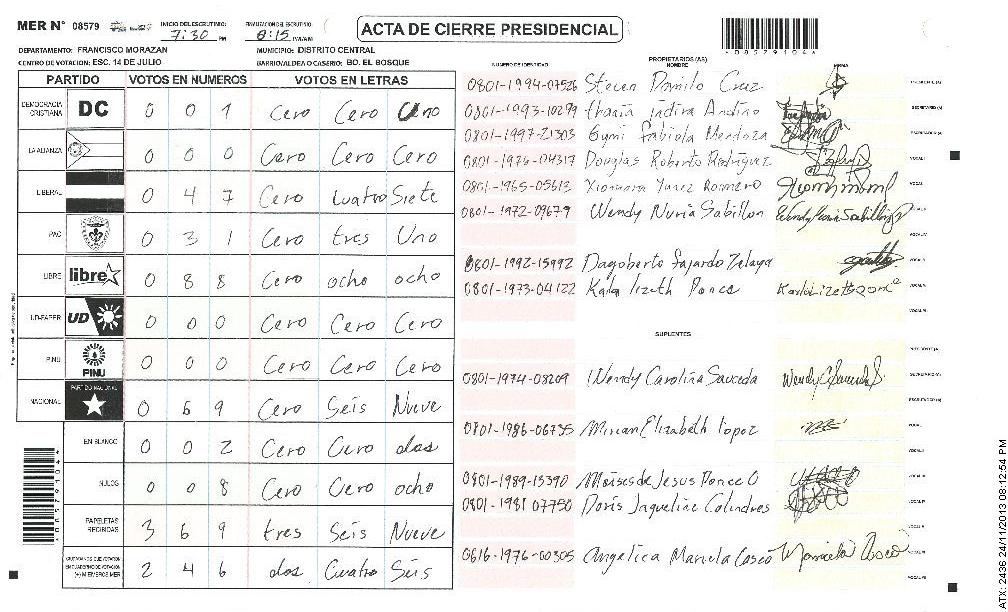 MER N° 08579 INICIO DEL ESCRUTINIO: 7:30 PM FINALIZACION DEL ESCRUTINIO: 8:15 PM/AM ACTA DE CIERRE PRESIDENCIAL
08579104
DEPARTAMENTO: FRANCISCO MORAZAN MUNICIPIO: DISTRITO CENTRAL
CENTRO DE VOTACION: ESC. 14 DE JULIO BARRIO/ALDEA O CASERIO: BO. EL BOSQUE
PARTIDO VOTOS EN NUMEROS VOTOS EN LETRAS
DEMOCRACIA CRISTIANA DC 0 0 1 Cero Cero Uno
LA ALIANZA 0 0 0 Cero Cero Cero
LIBERAL 0 4 7 Cero Cuatro Siete
PAC 0 3 1 Cero tres Uno
LIBRE libre 0 8 8 Cero ocho ocho
UD-FAPER UD 0 0 0 Cero Cero Cero
PINU PINU 0 0 0 Cero Cero Cero
NACIONAL PARTIDO NACIONAL 0 6 9 Cero Seis Nueve
EN BLANCO 0 0 2 Cero Cero dos
NULOS 0 0 8 Cero Cero ocho
PAPELETAS RECIBIDAS 3 6 9 tres Seis Nueve
CIUDADANOS QUE VOTARON EN CUADERNO DE VOTACION (+) MIEMBROS MER 2 4 6 dos Cuatro Seis
NUMERO DE IDENTIDAD PROPIETARIOS (AS) NOMBRE FIRMA
0801-1994-07526 Steven Danilo Cruz PRESIDENTE (A)
0801-1993-10299 thania jadira Andino SECRETARIO (A)
0801-1997-21303 Gymi fabiola Mendoza ESCRUTADOR (A)
0801-1976-04317 Douglas Roberto Rodriguez VOCAL I
0801-1965-05613 Xiomara Yanez Romero VOCAL
0801-1972-09679 Wendy Nuria Sabillon VOCAL
VOCAL IV
0801-1992-15992 Dagoberto fajardo Zelaya VOCAL
0801-1973-04122 Karla lizeth Ponce VOCAL
VOCAL
SUPLENTES
PRESIDENTE (A)
0801-1974-08209 Wendy Carolina Sauceda SECRETARIO (A)
ESCRUTADOR (A)
0801-1986-06735 Mirian Elizabeth lopez VOCAL
VOCAL
0801-1989-15390 Moises de Jesus Ponce O VOCAL
0801-1981 07750 Doris Jaqueline Colindres VOCAL
VOCAL
0616-1976-00305 Angelica Mariela Cosco VOCAL
VOCAL
08579104
ATX: 2436 24/11/2013 08:12:54 PM